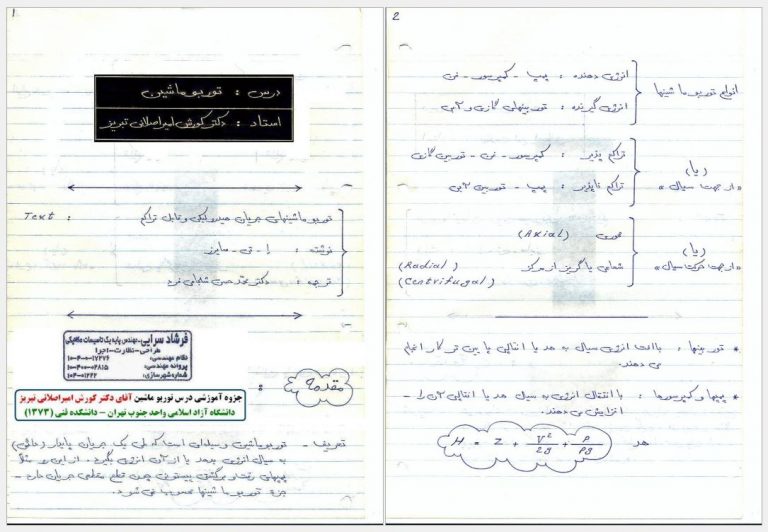 1
درس : توربوماشین
استاد : دکتر کورش امیراصلانی تبریز
Text : توربو ماشینهای جریان هیدرولیکی و قابل تراکم
نوشته : ا - تی - سایرز
ترجمه : دکتر محمد حسن شجاعی فرد
فرشاد سرایی - مهندس پایه یک تاسیسات مکانیکی
طراحی - نظارت - اجرا
نظام مهندسی:
پروانه مهندسی:
شماره شهرسازی:
مقدمه :
جزوه آموزشی درس توربو ماشین آقای دکتر کورش امیراصلانی تبریز
دانشگاه آزاد اسلامی واحد جنوب تهران - دانشکده فنی (۱۳۷۳)
تعریف - توربوماشین وسیله‌ای است که طی یک جریان پایدار (دائمی)
به سیال انرژی بدهد یا از آن انرژی بگیرد. از این رو مثلاً
پمپهای رفت و برگشتی پیستونی چون قطع مقطعی جریان دارد -
جزء توربو ماشینها محسوب نمی شود.
2
انواع توربو ماشینها
انرژی دهنده : پمپ - کمپرسور - فن
انرژی گیرنده : توربینهای گازی و آبی
(یا)
"از جهت سیال"
تراکم پذیر : کمپرسور - فن - توربین گازی
تراکم ناپذیر : پمپ - توربین آبی
(یا)
"از جهت حرکت سیال"
محوری (Axial)
شعاعی یا گریز از مرکز (Radial)
(Centrifugal)
* توربینها : با افت انرژی سیال به هد یا انتقالی پایین تر کار انجام
می دهند.
* پمپها و کمپرسورها : با انتقال انرژی به سیال هد یا انتقالی آن را -
افزایش می دهند.
هد H = Z + V²/2g + P/ρg